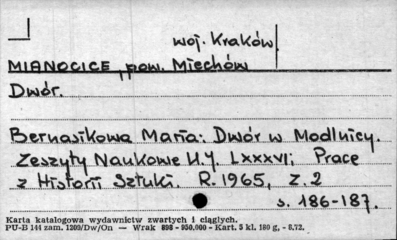 woj. Kraków
MIANOCICE, pow. Miechów
Dwór.
Bernasikowa Maria: Dwór w Modlnicy.
Zeszyty Naukowe U.J. LXXXVI; Prace
z Historii Sztuki. R.1965, Z.2
s. 186-187.
Karta katalogowa wydawnictw zwartych i ciągłych.
PU-B 144 zam. 1209/Dw/On — Wrak 898 - 950.000 - Kart. 3 kl. 180 g, - 8.72.